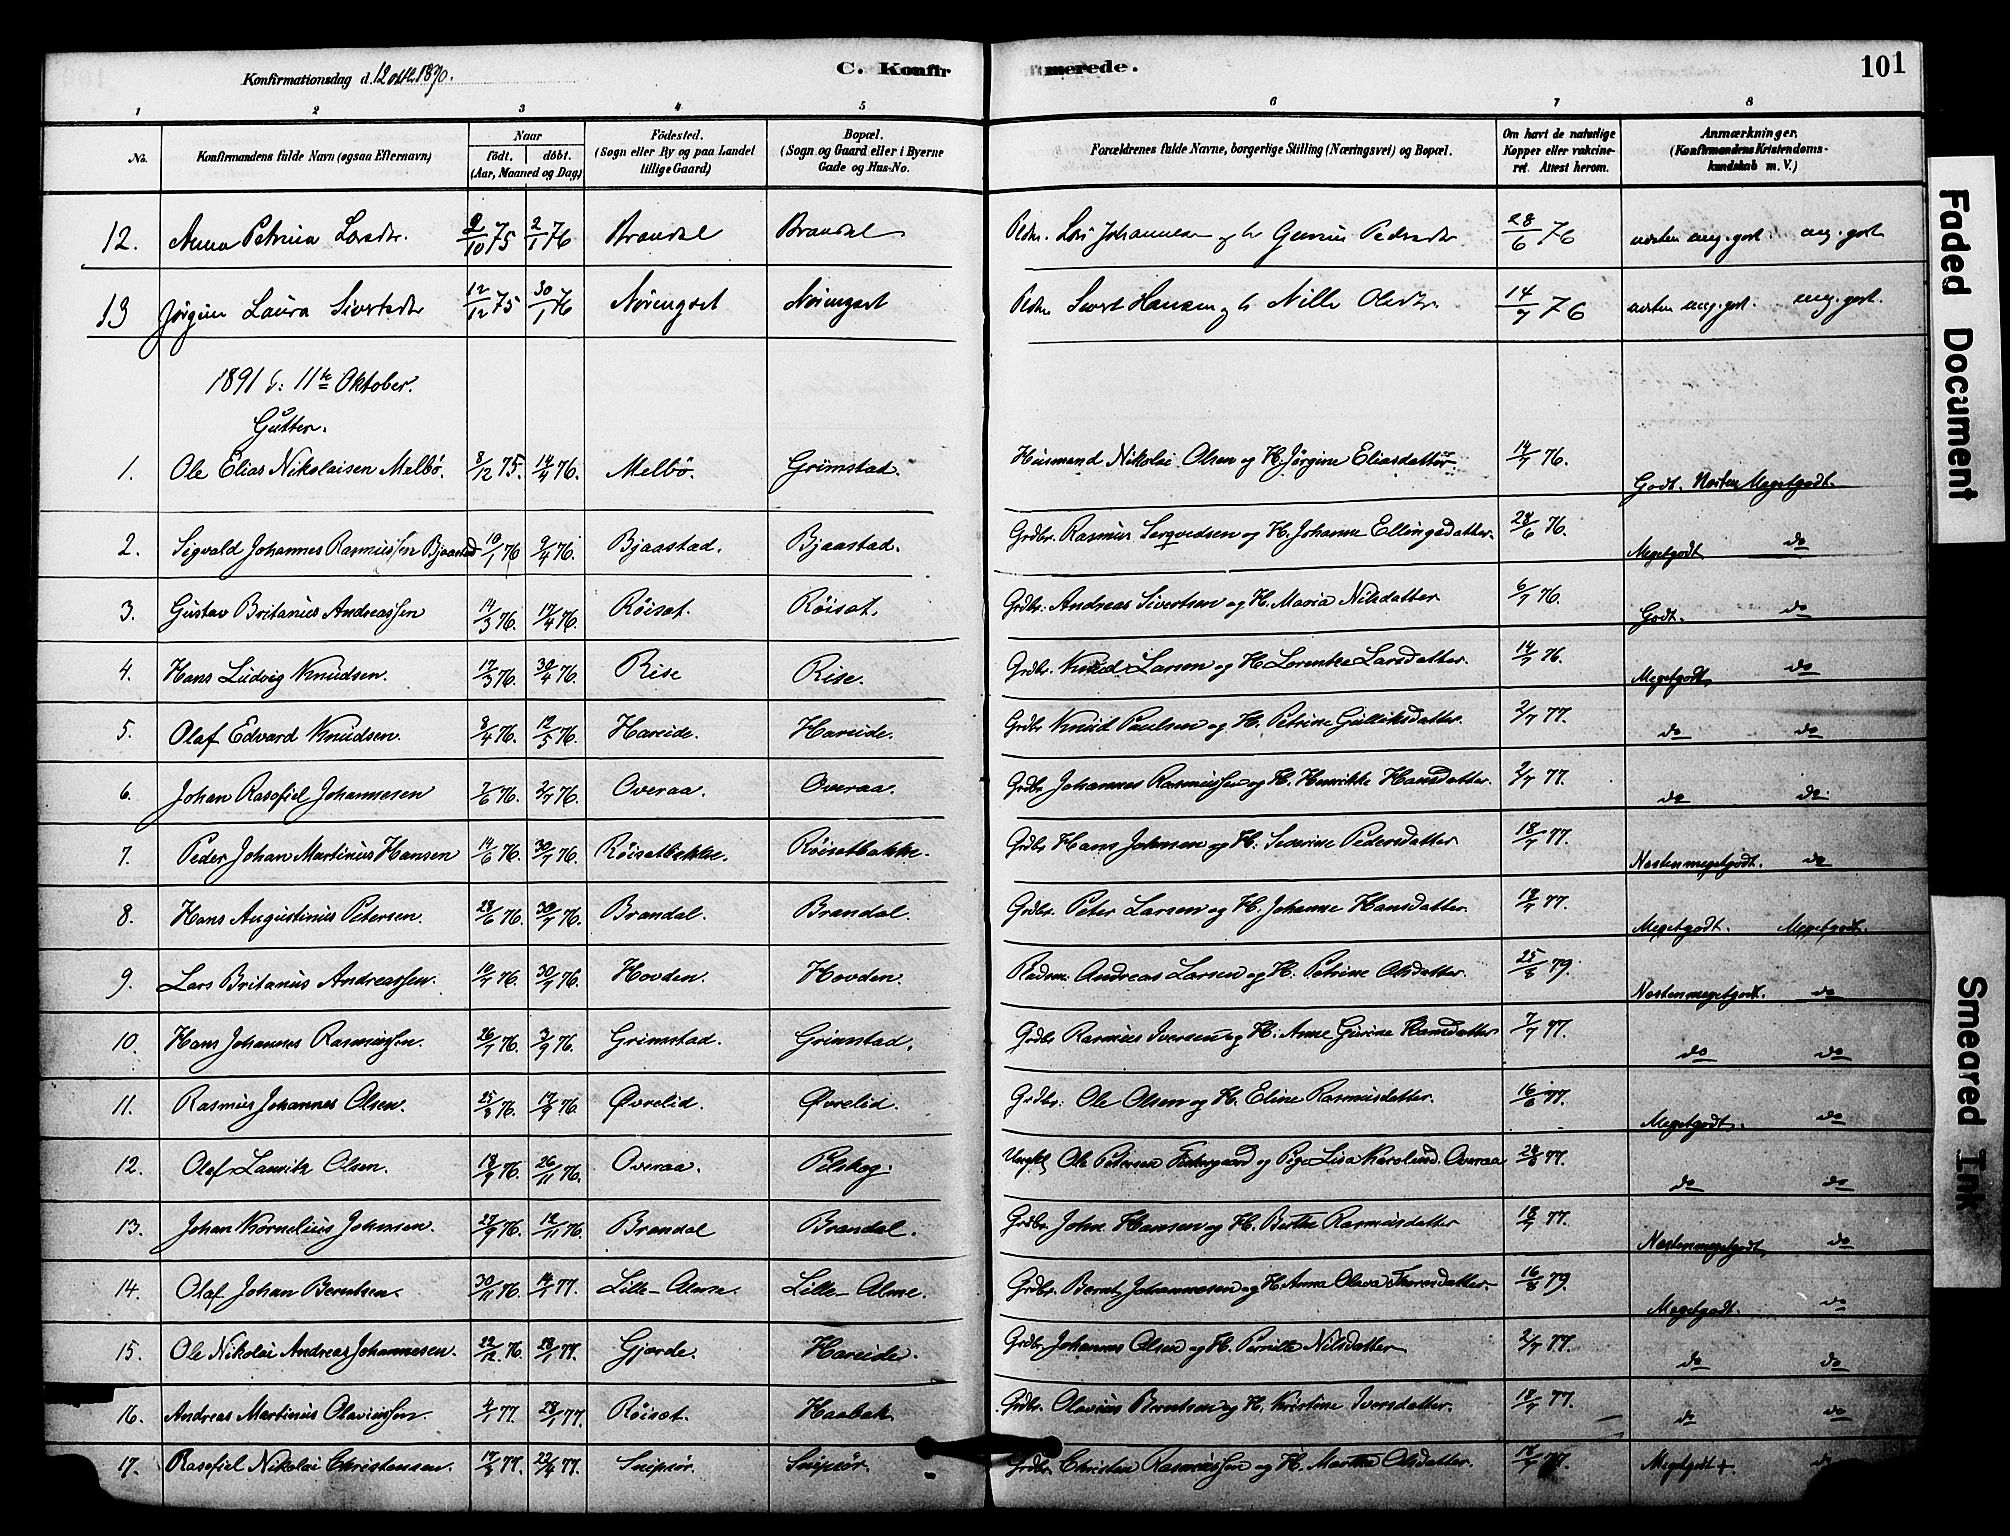 Konfirmationsdag d. 12 okt. 1890.
C. Konfirmerede.
101
1 2 3 4 5 6 7 8
No. Konfirmandens fulde Navn (ogsaa Efternavn) Naar födt. döbt. (Aar, Maaned og Dag) Födested. (Sogn eller By og paa Landet tillige Gaard) Bopæl. (Sogn og Gaard eller i Byerne Gade og Hus-No. Forældrenes fulde Navne, borgerlige Stilling (Næringsvei) og Bopæl. Om havt de naturlige Kopper eller vakcineret. Attest herom. Anmærkninger, (Konfirmandens Kristendomskundskab m. V.)
12. Anna Petrina Larsdtr. 9/10 75 2/1 76 Brandal Brandal Lars Johannesen og h 28/6 76 næsten meg. godt. meg. godt
13 Jørgine Laura Sivertsdtr 12/12 75 30/1 76 Sivert Hansen og h Nille Olsdtr. 14/7 76 næsten meg. godt. meg. godt.
1891 d: 11te Oktober.
Gutter.
1. Ole Elias Nikolaisen Melbö. 8/12 75. 14/4 76. Melbö. Grimstad. Husmand Nikolai Olsen og H. Jørgine Eliasdatter. 14/7 76. Godt. Næsten Megetgodt.
2. Sigvald Johannes Rasmussen Bjaastad 10/1 76 9/4 76. Bjaastad. Bjaastad. Grdbr. Rasmus og H. Johanne Ellingsdatter. 28/6 76. Megetgodt do
3. Gustav Britanius Andreassen 14/3 76. 17/4 76. Röiset. Röiset. Grdbr. Andreas Sivertsen og H. Maria Nilsdatter 6/7 76. Godt. do
4. Hans Ludvig Knudsen. 17/3 76. 30/4 76. Rise Rise. Grdbr. Knud Larsen og H. Lorentze Larsdatter. 14/7 76. Megetgodt do
5. Olaf Edvard Knudsen. 8/4 76. 12/5 76. Hareide. Hareide. Grdbr Knud Paulsen og H. Petrine Gulliksdatter. 2/7 77. do do
6. Johan Rasefiel Johannesen 7/6 76. 2/7 76. Overaa. Overaa. Grdbr Johannes Rasmussen og H. Henrikke Hansdatter. 2/7 77. do do
7. Peder Johan Martinus Hansen 14/6 76. 30/7 76. Röisetbakke. Röisetbakke. Grdbr Hans Johnsen og H. Severine Pedersdatter 18/7 77. Næstenmegetgodt. do
8. Hans Augustinus Petersen 28/6 76. 30/7 76. Brandal. Brandal. Grdbr. Peter Larsen og H. Johanne Hansdatter. 18/7 77. Megetgodt. Megetgodt.
9. Lars Britanus Andreassen. 10/7 76. 30/7 76. Hovden. Hovden. Andreas Larsen og H. Petrine Olsdatter. 25/8 79. Næstenmegetgodt. do
10. Hans Johannes Rasmussen. 26/7 76. 3/9 76. Grimstad. Grimstad. Grdbr Rasmus Iversen og H. Anne Gurine Hansdatter 7/7 77. do do
11. Rasmus Johannes Olsen. 25/8 76. 17/9 76. Øvrelid. Øvrelid. Grdbr. Ole Olsen og H. Eline Rasmusdatter. 16/8 77. Megetgodt. do
12. Olaf Lauritz Olsen. 18/9 76. 26/11 76. Overaa. Pilskog. Ungkl Ole Petersen og Pige Lisa Karolina Overaa 28/8 77. do do
13. Johan Kornelius Johnsen. 27/9 76. 12/11 76. Brandal Brandal. Grdbr. John Hansen og H. Berthe Rasmusdatter 18/7 77. Næstenmegetgodt do
14. Olaf Johan Berntsen. 30/11 76. 14/1 77. Lille-Alme. Lille-Alme. Grdbr. Bernt Johannesen og H. Anna Olava Thoresdatter. 16/8 79. Megetgodt. do
15. Ole Nikolai Andreas Johannesen. 22/12. 76. 28/1 77. Gjerde. Hareide. Grdbr Johannes Olsen og H. Pernille Nilsdatter 2/7 77. do do
16. Andreas Martinus Olavussen. 4/1 77. 28/1 77. Röiset. Haabak Grdbr. Olavus Berntsen og H. Kristine Iversdatter. 18/7 77. do do
17. Rasefiel Nikolai Christensen. 17/3 77. 22/4 77. Snipsör. Snipsör. Grdbr. Christen Rasmussen og H. Marthe Olsdatter. 18/7 77. Megetgodt +. do
Faded Document
Smeared Ink